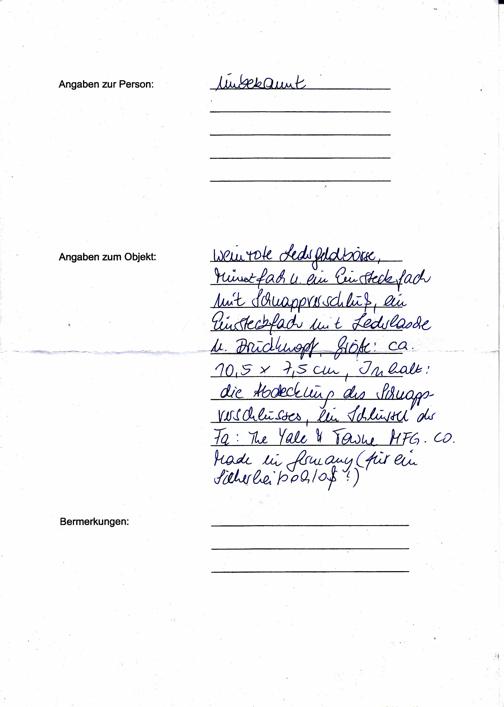 Angaben zur Person:
Unbekannt
Angaben zum Objekt:
Weinrote Ledergeldbörse,
Münzfach u. ein Einsteckfach
mit Schnappverschluß, ein
Einsteckfach mit Lederlasche
u. Druckknopf, Größe: ca.
10,5 x 7,5 cm, Inhalt:
die Abdeckung des Schnapp-
verschlusses, ein Schlüssel der
Fa: The Yale & Towne MFG. CO.
Made in Germany (für ein
Sicherheitsschloß?)
Bermerkungen: